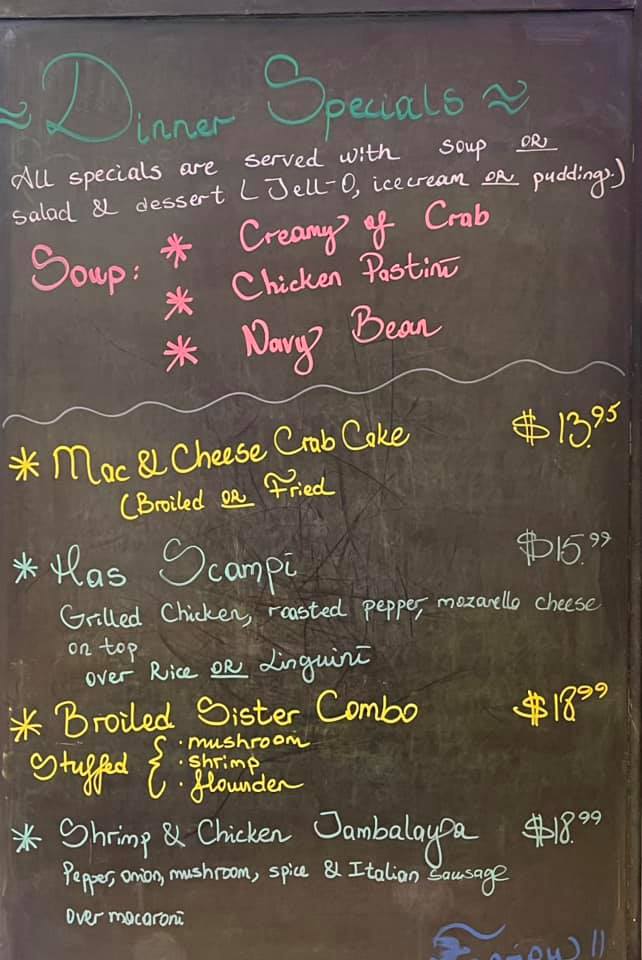 ≈ Dinner Specials ≈
All specials are served with soup OR
salad & dessert ( Jell-O, icecream OR puddings.)
Soup: * Creamy of Crab
* Chicken Pastini
* Navy Bean
* Mac & Cheese Crab Cake $13.95
(Broiled OR Fried
* Has Scampi $15.99
Grilled Chicken, roasted pepper, mozarello cheese
on top
over Rice OR Linguini
* Broiled Sister Combo $18.99
Stuffed { · mushroom
· shrimp
· flounder
* Shrimp & Chicken Jambalaya $18.99
Pepper, onion, mushroom, spice & Italian Sausage
over macaroni